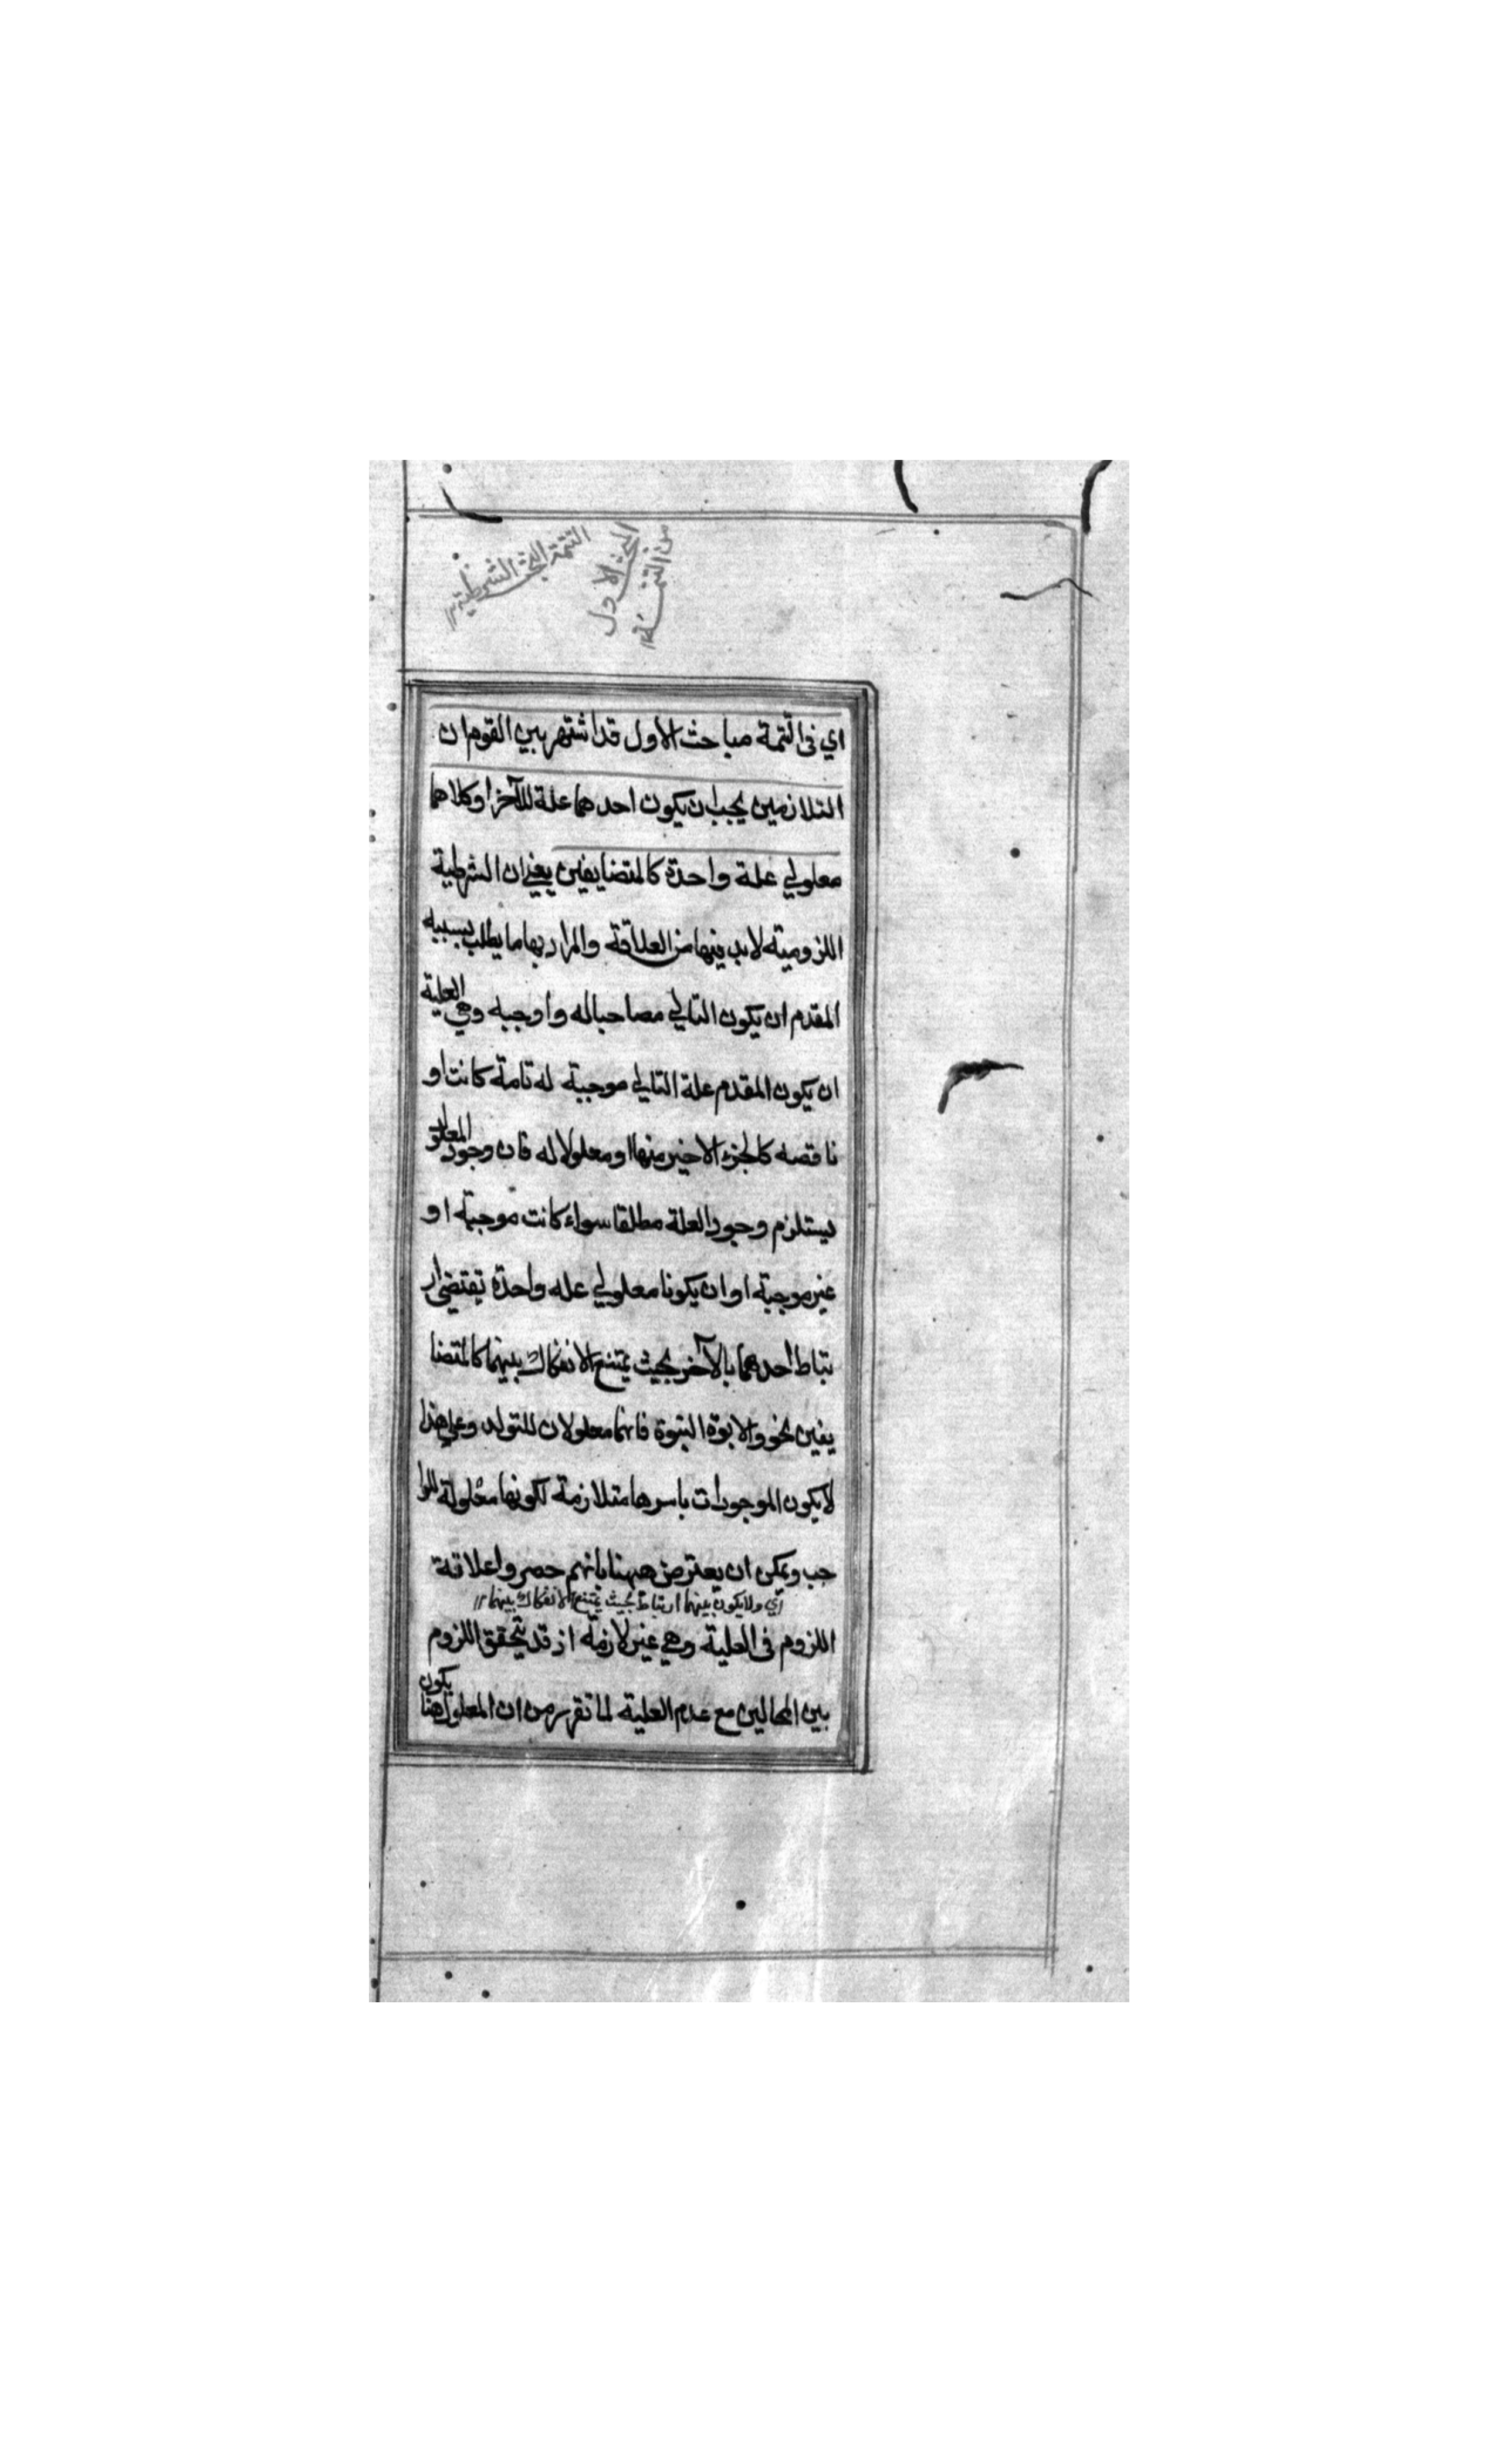 البحث الاول
من التتمة
التتمة البحث الشرطية
اي في التمة مباحث الاول قد اشتهر بين القوم ان
التلازمين يجب ان يكون احدهما علة للآخر او كلاهما
معلولي علة واحدة كالمتضايفين يعني ان الشرطية
اللزومية لابد فيها من العلاقة والمراد بها ما يطلب بسببه
المقدم ان يكون التالي مصاحبا له واوجبه وهي العلية
ان يكون المقدم علة التالي موجبة له تامة كانت او
ناقصه كالجزء الاخير منها او معلولا له فان وجود المعلول
يستلزم وجود العلة مطلقا سواء كانت موجبة او
غير موجبة او ان يكونا معلولي عله واحدة تقتضي ار
تباط احدهما بالآخر بحيث يمتنع الانفكاك بينهما كالمتضا
يفين نحو والابوة البنوة فانهما معلولان للتولد وعلى هذا
لايكون الموجودات باسرها متلازمة لكونها معلولة للوا
جب ويمكن ان يعترض ههنا بانهم حصروا علاقة
اي ولايكون بينهما ارتباط بحيث يمتنع الانفكاك بينهما
اللزوم في العلية وهي غير لازمة اذ قد يتحقق اللزوم
بين المحالين مع عدم العلية لما تقرر من ان المعلول هنا
يكون